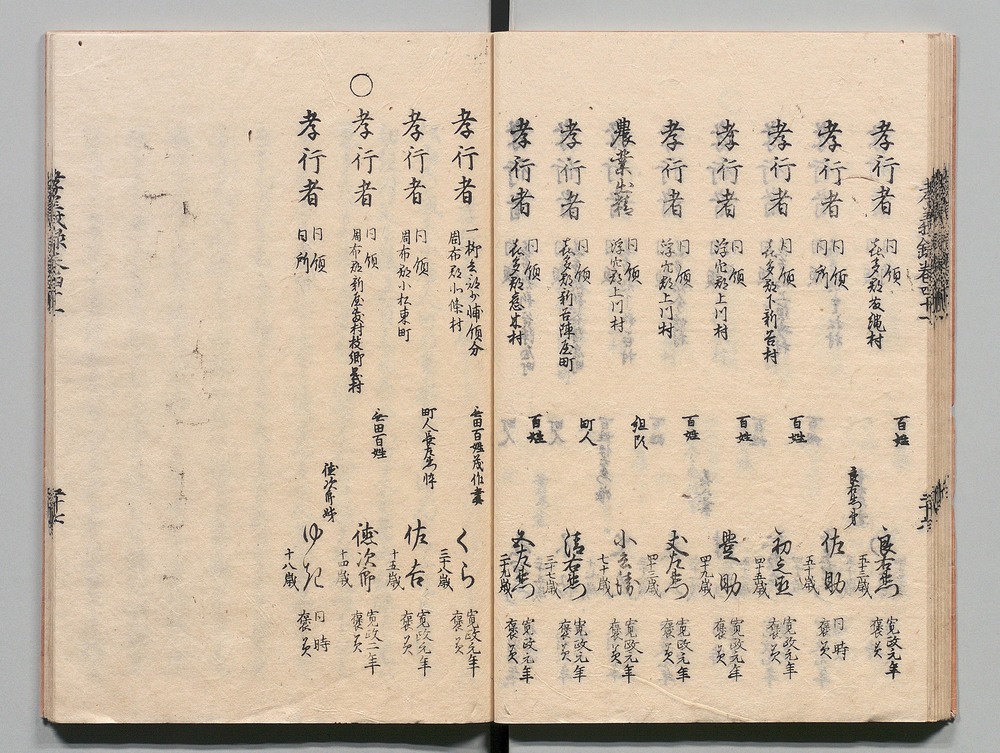 孝行者 同領 喜多郡 村 百姓 良右衛門 五十三歳 寛政元年 褒美
孝行者 同領 同所 良右衛門弟 佐助 五十歳 同時 褒美
孝行者 同領 喜多郡下新谷村 百姓 初之亟 四十五歳 寛政元年 褒美
孝行者 同領 浮穴郡上川村 百姓 豊助 四十九歳 寛政元年 褒美
孝行者 同領 浮穴郡上川村 百姓 丈左衛門 四十三歳 寛政元年 褒美
農業出精 同領 浮穴郡上川村 組頭 七十歳 寛政元年 褒美
孝行者 同領 喜多郡新谷陣屋町 町人 清右衛門 三十七歳 寛政元年 褒美
孝行者 同領 喜多郡 村 百姓 左衛門 寛政元年 褒美
孝行者 一柳 領分 周布郡北條村 無田百姓茂作妻 くら 三十八歳 寛政元年 褒美
孝行者 同領 周布郡小松東町 町人長左衛門悴 佐吉 十五歳 寛政元年 褒美
○
孝行者 同領 周布郡新屋敷村枝郷 村 無田百姓 徳次郎 十四歳 寛政二年 褒美
孝行者 同領 同所 徳次郎姉 ゆき 十八歳 同時 褒美